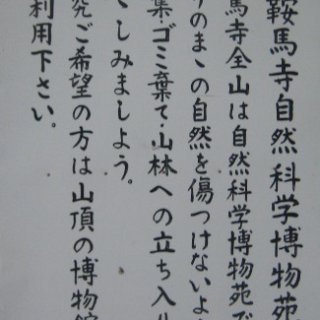 鞍馬寺自然科学博物苑
馬寺全山は自然科学博物苑で
りのまゝの自然を傷つけないよ
集ゴミ棄て山林への立ち入
くしみましよう。
究ご希望の方は山頂の博物館
利用下さい。